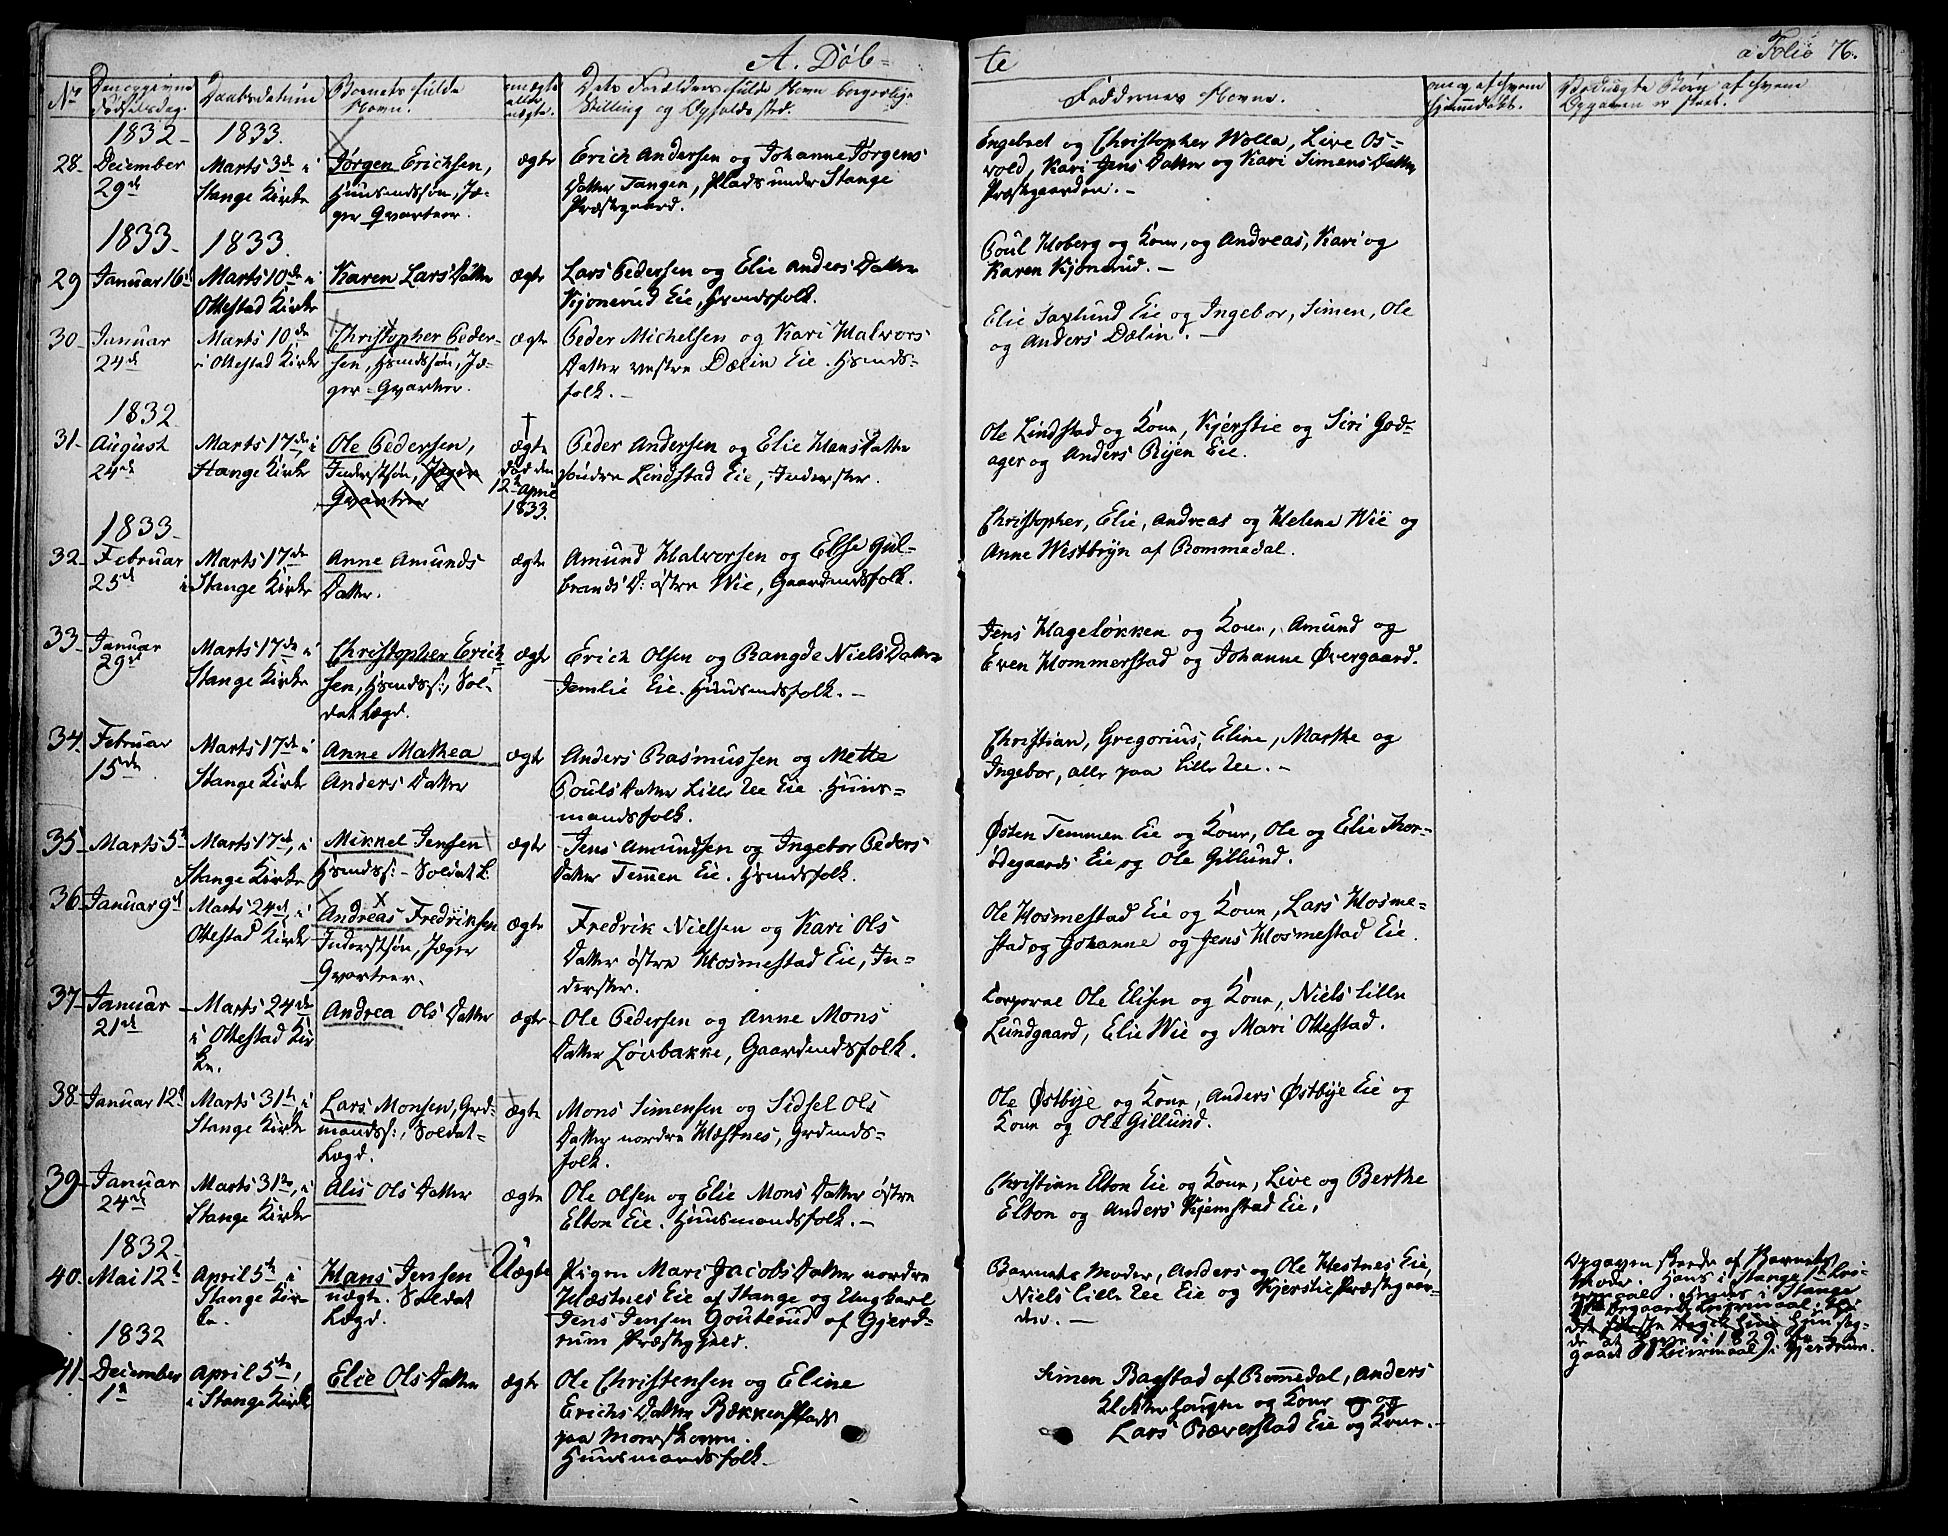 A. Döb=
te
a Folio 76.
No
Den opgivne Fødselsdag.
Daabsdatum
Barnets fulde Navn.
ægte eller uægte.
Dets Forældres fulde Navn borgerlige Stilling og Opholdssted.
Faddernes Navne.
om og af hvem hjemmedøbt.
1832-
1833.
28-
December
29de
Marts 3de i
Stange Kirke
Jørgen Erichsen,
Huusmandssön, Jæ-
ger Qvarteer.
ægte
Erich Andersen og Johanne Jørgens
Datter Tangen, Plads under Stange
Præstegaard.
Engebret og Christopher Wolla, Live Os-
vold, Kari Jens Datter og Kari Simens Datter
Præstegaarden. -
1833-
1833.
29
Januar 16de
Marts 10de i
Ottestad Kirke
Karen Lars Datter
ægte
Lars Pedersen og Elie Anders Datter
Kjonerud Eie, Hsmdsfolk.
Poul Hoberg og Kone, og Andreas, Kari og
Karen Kjonerud. -
30-
Januar
24de
Marts 10de
i Ottestad Kirke
Christopher Peder-
sen, Hsmdssön, Jæ-
ger-Qvarteer.
ægte
Peder Michelsen og Kari Halvors
Datter vestre Dælin Eie. Hsmds-
folk. -
Elie Saxlund Eie og Ingebor, Simen, Ole
og Anders Dælin. -
1832
31-
August
24de
Marts 17de, i
Stange Kirke
Ole Pedersen,
Inderstsön, Jæger
Qvarteer
†
ægte
død den
12te April
1833.
Peder Andersen og Elie Hans Datter
söndre Lindstad Eie, Inderster.
Ole Lindstad og Kone, Kjerstie og Siri God-
ager og Anders Rijen Eie.
1833-
32-
Februar
25de
Marts 17de
i Stange Kirke
Anne Amunds
Datter.
ægte
Amund Halvorsen og Else Gul-
brands D: østre Wie, Gaardmdsfolk.
Christopher, Elie, Andreas og Helene Wie og
Anne Westbyn af Rommedal.
33-
Januar
29de
Marts 17de i
Stange Kirke
Christopher Erich
sen, Hsmdss:, Sol-
dat Lægd.
ægte
Erich Olsen og Rangde Niels Datter
Jemlie Eie. Huusmdsfolk. -
Jens Hagelökken og Kone, Amund og
Even Hommerstad og Johanne Øvergaard.
34-
Februar
15de
Marts 17de i
Stange Kirke
Anne Mathea
Anders Datter
ægte
Anders Rasmussen og Mette
Pouls Datter Lille Ree Eie. Huus-
mandsfolk.
Christian, Gregorius, Eline, Marthe og
Ingebor, alle paa lille Ree. -
35-
Marts 5te
Marts 17de, i
Stange Kirke
Mikkel Jensen
Hsmdss: - Soldat L.
ægte
Jens Amundsen og Ingebor Peders
Datter Temmen Eie. Hsmdsfolk.
Østen Temmen Eie og Kone, Ole og Elie Thor-
ödegaards Eie og Ole Gillund.
36-
Januar 9de
Marts 24de, i
Ottestad Kirke
Andreas Fredriksen
Inderstsön, Jæger
Qvarteer.
ægte
Fredrik Nielsen og Kari Ols
Datter østre Hosmestad Eie, In-
derster.
Ole Hosmestad Eie og Kone, Lars Hosme-
stad og Johanne og Jens Hosmestad Eie.
37-
Januar
21de
Marts 24de
i Ottestad Kir
ke.
Andrea Ols Datter
ægte
Ole Pedersen og Anne Mons
Datter Lövbakke, Gaardmdsfolk.
Corporal Ole Elisen og Kone, Niels lille
Lundgaard, Elie Wie og Mari Ottestad.
38-
Januar 12te
Marts 31te, i
Stange Kirke
Lars Monsen, Grd-
mandss:, Soldat-
Lægd.
ægte
Mons Simensen og Sidsel Ols
Datter nordre Hæstnes, Grdmds-
folk.
Ole Østbye og Kone, Anders Østbye Eie og
Kone og Ole Gillund.
39-
Januar
24de
Marts 31te, i
Stange Kirke
Alis Ols Datter
ægte
Ole Olsen og Elie Mons Datter østre
Elton Eie. Huusmandsfolk. -
Christian Elton Eie og Kone, Live og Berthe
Elton og Anders Kjemstad Eie,
1832-
40.
Mai 12te
April 5te, i
Stange Kir-
ke.
Hans Jensen
uægte. Soldat
Lægd.
Uægte
Pigen Mari Jacobs Datter nordre
Hæstnes Eie af Stange og Ungkarl
Jens Jensen Gouterud af Gjerd-
rum Præstegjeld.
Barnets Moder, Anders og Ole Hestnes Eie,
Niels lille Ree Eie og Kjerstie Præstegaar-
den. -
Opgaven skede af Barnets
Moder.
1832
41-
December
1te
April 5te,
i Stange Kirke
Elie Ols Datter
ægte
Ole Christensen og Eline
Erichs Datter Bækken Plads
paa Moreskoven.
Huusmandsfolk. -
Simen Bagstad af Romedal, Anders
Klokkerhaugen og Kone og
Lars Bæverstad Eie og Kone. -